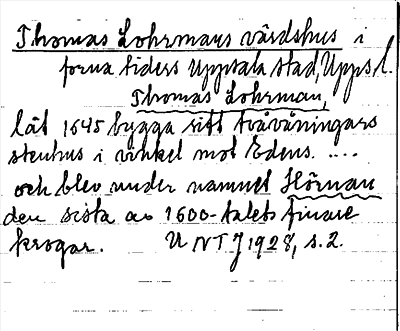 Thomas Lohrmans värdshus i
forna tiders Uppsala stad, Uppl.
Thomas Lohrman,
lät 1645 bygga sitt tvåvånings
stenhus i vinkel mot Edens. ....
och blev under namnet Hörnan
den sista av 1600-talets finare
krogar. UNT J 1928, s. 2.